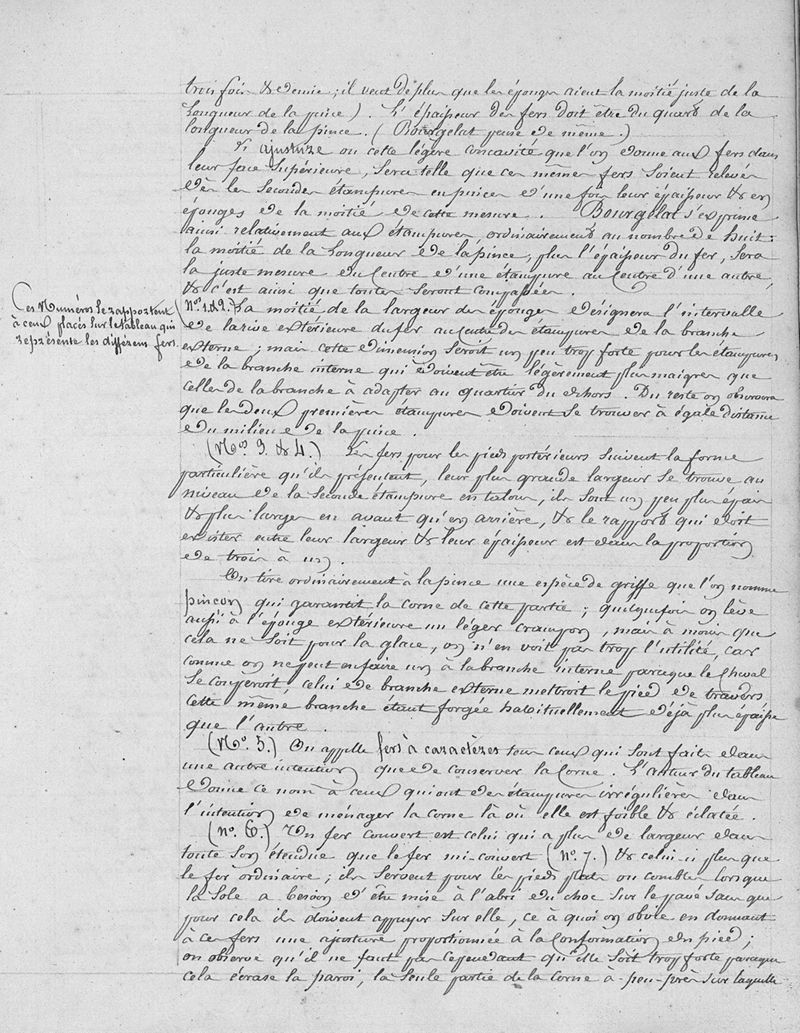 trois fois & demie ; il veut de plus que les éponges aient la moitié juste de la
Longueur de la pince ). L'épaisseur des fers doit être du quart de la
longueur de la pince. ( Bourgelat pense de même. )
L'ajusture ou cette légère concavité que l'on donne aux fers dans
leur face Supérieure, Sera telle que ces mêmes fers Soient relevés
dès les Secondes étampures en pinces d'une fois leur épaisseur & en
éponges de la moitié de cette mesure. Bourgelat s'exprime
ainsi relativement aux étampures ordinairement au nombre de huit :
la moitié de la Longueur de la pince, plus l'épaisseur du fer, Sera
la juste mesure du Centre d'une étampure au Centre d'une autre,
& c'est ainsi que toutes Seront Compassées.
Ces Numéros se rapportent
à ceux placés sur le tableau qui
représente les différens fers.
(Nos. 1. & 2.) La moitié de la largeur des éponges désignera l'intervalle
de la rive extérieure du fer au Centre des étampures de la branche
externe ; mais cette dimension Seroit un peu trop forte pour les étampures
de la branche interne qui doivent être légèrement plus maigres que
celles de la branche à adapter au quartier du dehors. Du reste on observera
que les deux premières étampures doivent Se trouver à égale distance
du milieu de la pince.
(Nos. 3. & 4.) Les fers pour les pieds postérieurs Suivent la forme
particulière qu'ils présentent, leur plus grande largeur Se trouve au
niveau de la Seconde étampure en talons, ils Sont un peu plus épais
& plus larges en avant qu'en arrière, & le rapport qui doit
exister entre leur largeur & leur épaisseur est dans la proportion
de trois à un.
On tire ordinairement à la pince une espèce de griffe que l'on nomme
pinçon qui garantit la corne de cette partie ; quelquefois on lève
aussi à l'éponge extérieure un léger crampon, mais à moins que
cela ne Soit pour la glace, on n'en voit pas trop l'utilité, car
comme on ne peut en faire un à la branche interne parceque le Cheval
Se couperoit, celui de branche externe mettroit le pied de travers
cette même branche étant forgée habituellement déjà plus épaisse
que l'autre.
(No. 5.) On appelle fers à caractères tous ceux qui Sont faits dans
une autre intention que de conserver la Corne. L'auteur du tableau
donne ce nom à ceux qui ont des étampures irrégulières dans
l'intention de ménager la corne là où elle est foible & éclatée.
(No. 6.) Un fer couvert est celui qui a plus de largeur dans
toute Son étendue que le fer mi-couvert (No. 7.) & celui-ci plus que
le fer ordinaire ; ils Servent pour les pieds plats ou combles lorsque
la Sole a besoin d'être mise à l'abri du choc Sur le pavé Sans que
pour cela ils doivent appuyer Sur elle, ce à quoi on obvie en donnant
à ces fers une ajusture proportionnée à la Conformation du pied ;
on observe qu'il ne faut pas cependant qu'elle Soit trop forte parceque
cela écrase la paroi, la Seule partie de la Corne à-peu-près Sur laquelle